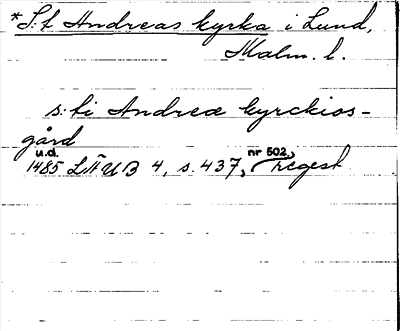 *S:t Andreas kyrka i Lund,
Malm. l.
s:ti Andreæ kyrckios-
gård
u.d. nr 502,
1485 LÄUB 4, s. 437, regest